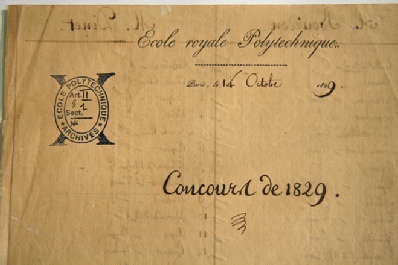 Ecole royale Polytechnique.
Paris, le 14 Octobe 1829.
ECOLE POLYTECHNIQUE
Art. II
§ 2
Sect.
N°
ARCHIVES
X
Concours de 1829.